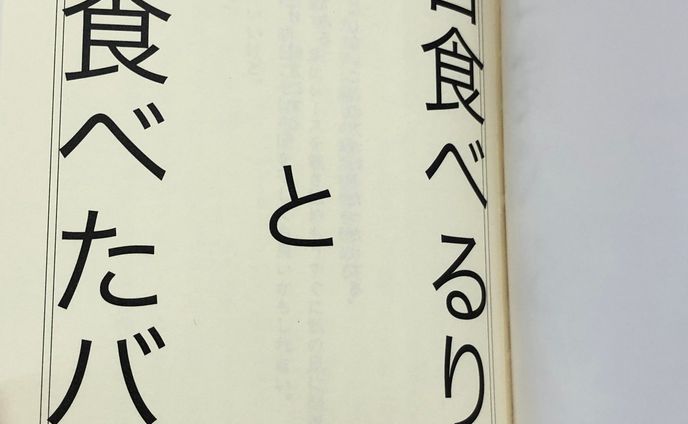 食べるり
と
食べたバ